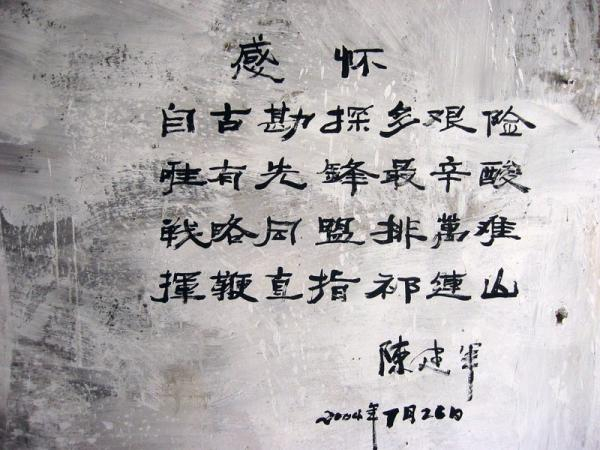 感怀
自古勘探多艰险
唯有先锋最辛酸
战略同盟排萬难
揮鞭直指祁連山
陈建军
2004年7月26日